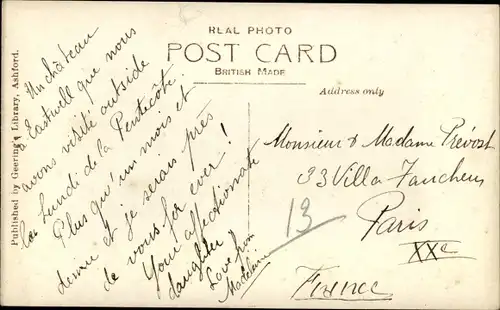 REAL PHOTO
POST CARD
BRITISH MADE
Address only
Published by Geering's Library, Ashford.
Un château
Eastwell que nous
avons visité outside
le Lundi de la Pentecôte.
Plus qu'un mois et
demie et je serais près
de vous for ever!
Your affectionate
daughter
Love from
Madeleine
Monsieur & Madame Prévost
33 Villa Faucheur
Paris
XXe
France
13